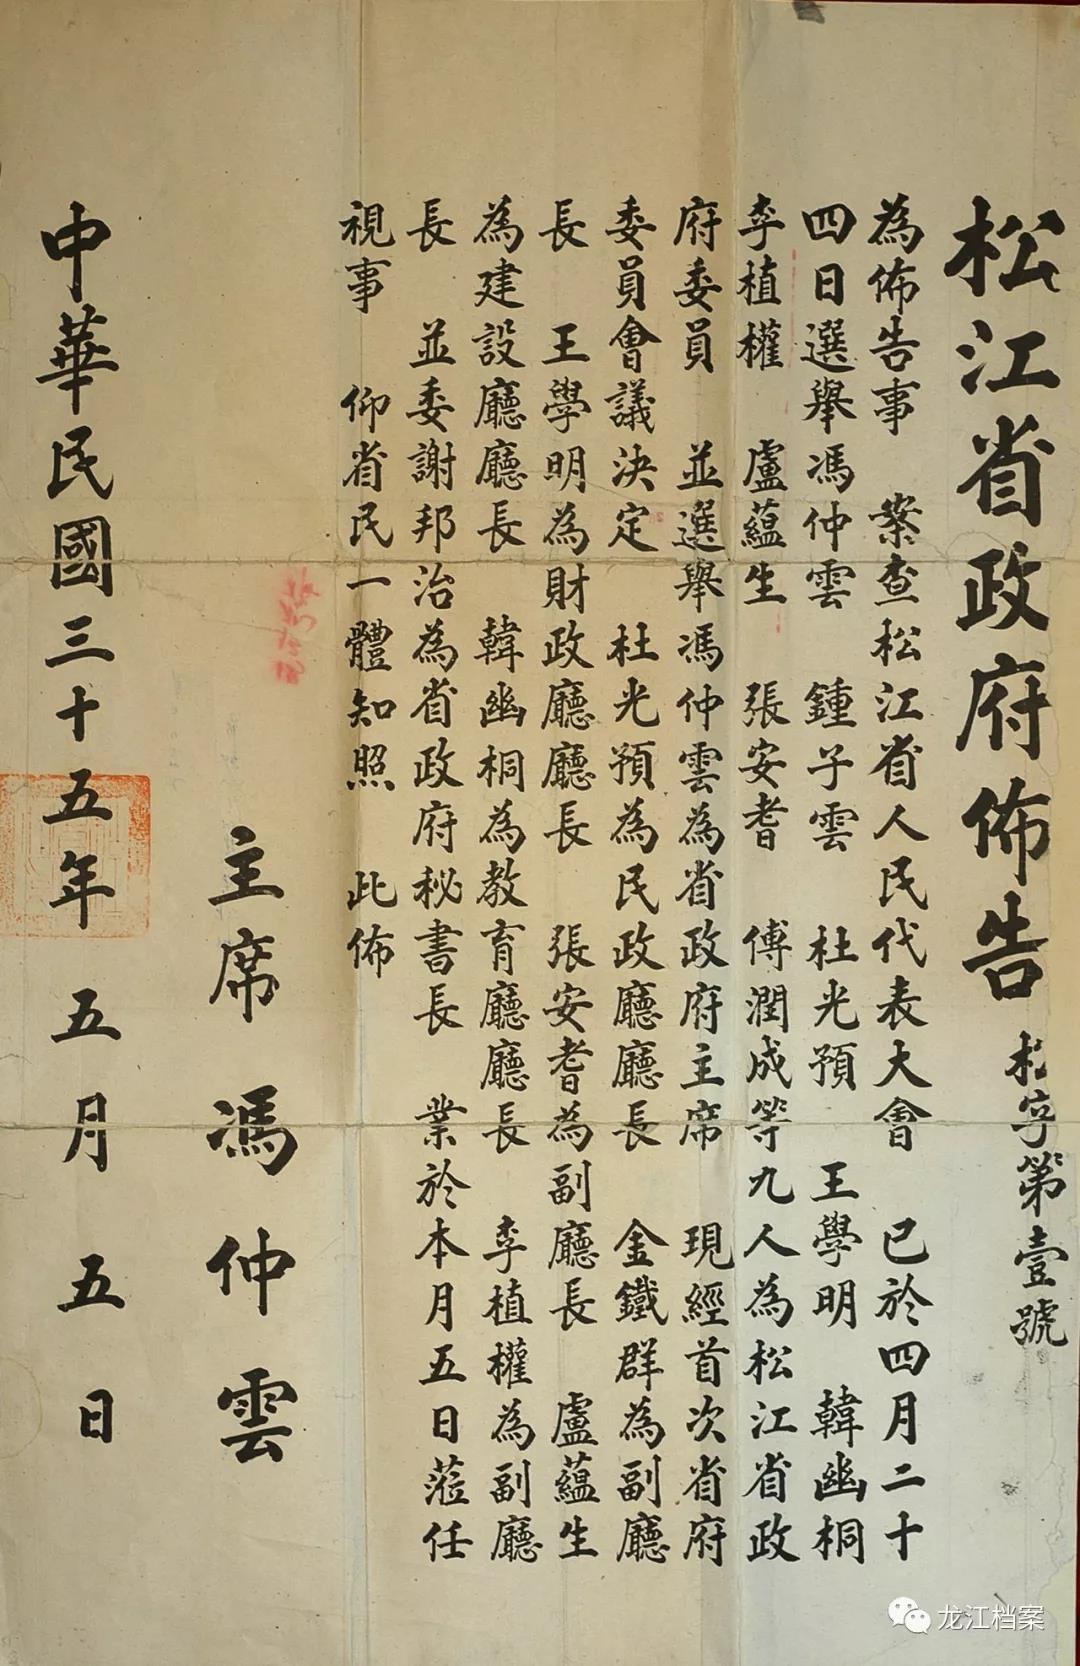 松江省政府佈告
松字第壹號
為佈告事　案查松江省人民代表大會　已於四月二十
四日選舉馮仲雲　鍾子雲　杜光預　王學明　韓幽桐
李植權　盧蘊生　張安耆　傅潤成等九人為松江省政
府委員　並選舉馮仲雲為省政府主席　現經首次省府
委員會議決定　杜光預為民政廳廳長　金鐵群為副廳
長　王學明為財政廳廳長　張安耆為副廳長　盧蘊生
為建設廳廳長　韓幽桐為教育廳廳長　李植權為副廳
長　並委謝邦治為省政府秘書長　業於本月五日蒞任
視事　仰省民一體知照　此佈
主席馮仲雲
中華民國三十五年五月五日
龙江档案